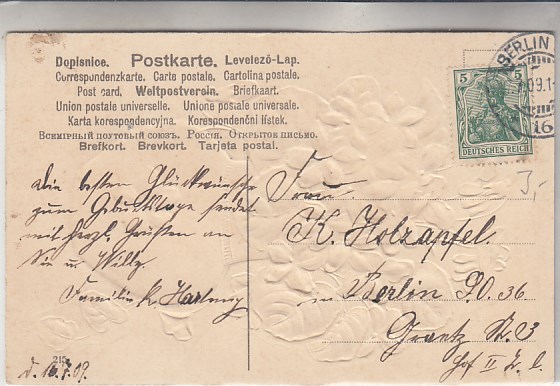 Dopisnice. Postkarte. Levelező-Lap.
Correspondenzkarte. Carte postale. Cartolina postale.
Post card. Weltpostverein. Briefkaart.
Union postale universelle. Unione postale universale.
Karta korespondencyjna. Korespondenční lístek.
Всемірный почтовый союзъ. Россія. Открытое письмо.
Brefkort. Brevkort. Tarjeta postal.
BERLIN
09.1
16
5 5
DEUTSCHES REICH
3,-
Die besten Glückwünsche
zum Geburtstage sendet
mit herzl. Grüßen an
Sie u. Willy.
Familie K. Hartung
d. 16.7.09.
Frau
K. Holzapfel.
in Berlin SO. 36.
Graetz St. 23
Hof II Tr. l.